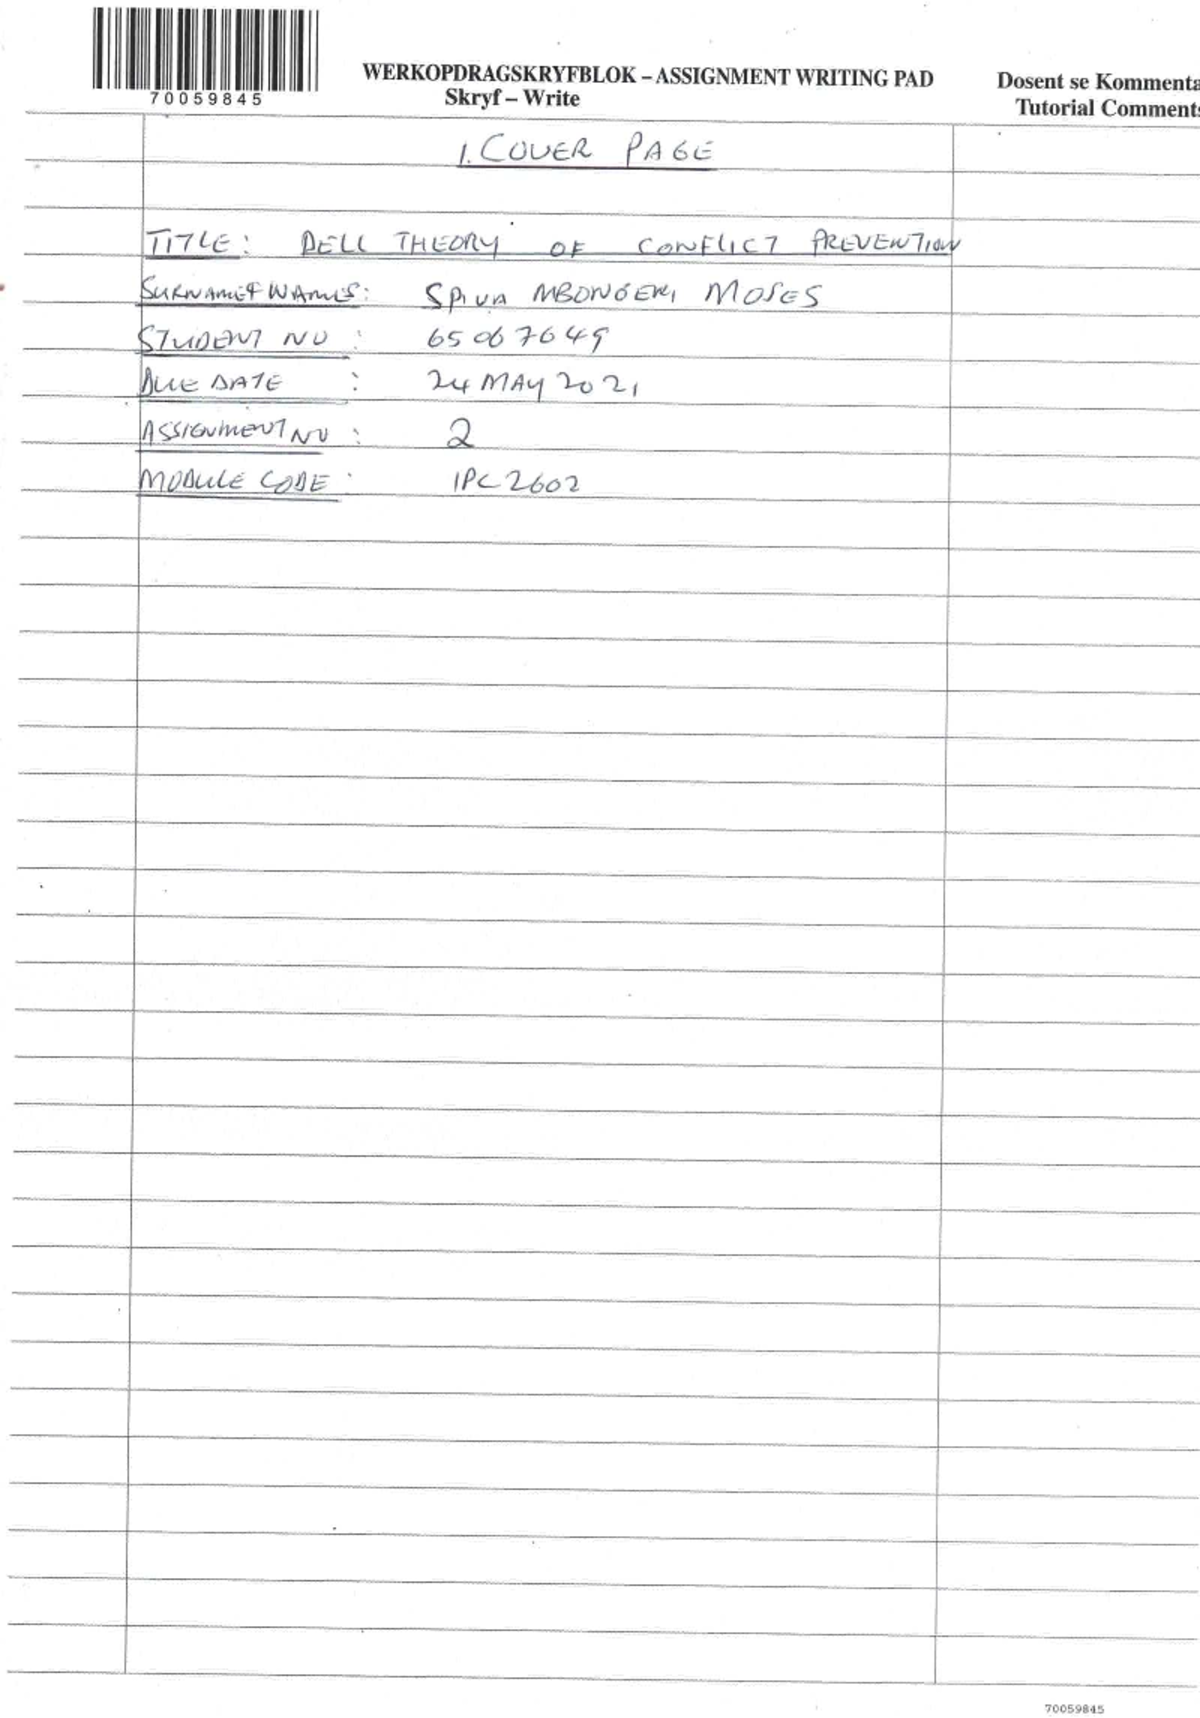 70059845
WERKOPDRAGSKRYFBLOK – ASSIGNMENT WRITING PAD
Skryf – Write
Dosent se Kommenta
Tutorial Comments
1. COVER PAGE
TITLE: DELL THEORY OF CONFLICT PREVENTION
SURNAME & NAMES: MBONGENI MOSES
STUDENT NO : 65067649
DUE DATE : 24 MAY 2021
ASSIGNMENT NO : 2
MODULE CODE : IPC2602
70059845